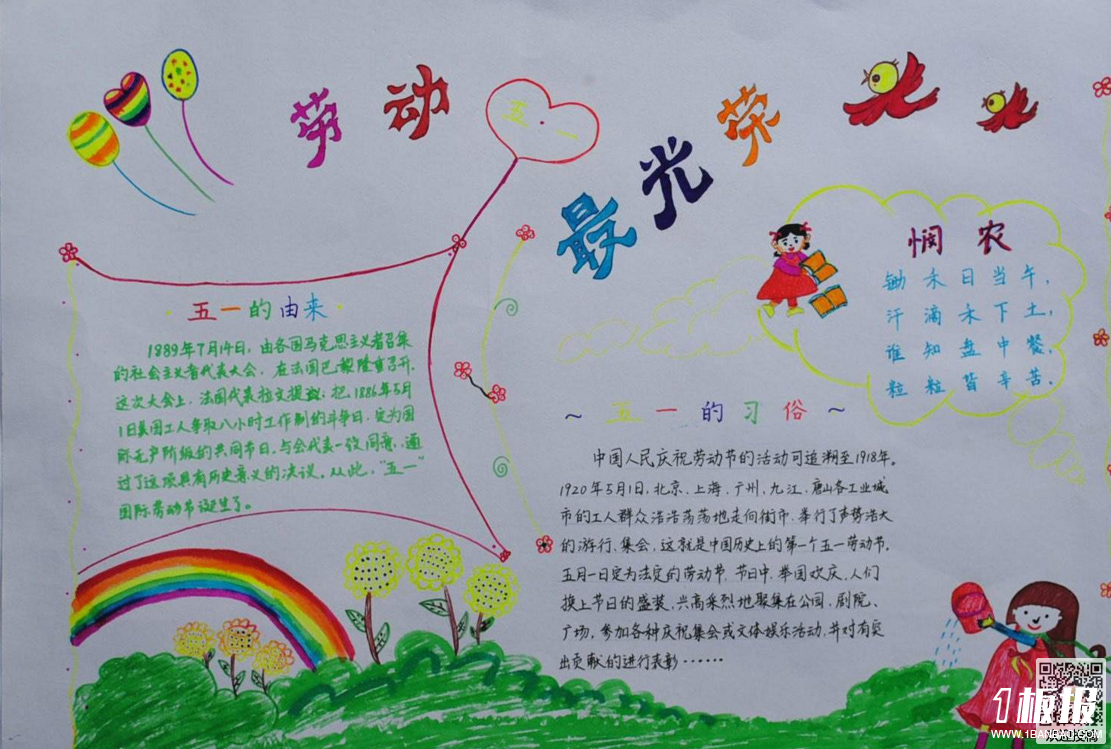 劳动
五一
最光荣
五一的由来
1889年7月14日，由各国马克思主义者召集
的社会主义者代表大会，在法国巴黎隆重召开。
这次大会上，法国代表拉文提议：把1886年5月
1日美国工人争取八小时工作制的斗争日，定为国
际无产阶级的共同节日。与会代表一致同意，通
过了这项具有历史意义的决议。从此，“五一”
国际劳动节诞生了。
悯农
锄禾日当午，
汗滴禾下土，
谁知盘中餐，
粒粒皆辛苦。
~五一的习俗~
中国人民庆祝劳动节的活动可追溯至1918年。
1920年5月1日，北京、上海、广州、九江、唐山各工业城
市的工人群众浩浩荡荡地走向街市、举行了声势浩大
的游行、集会，这就是中国历史上的第一个五一劳动节。
五月一日定为法定的劳动节，节日中，举国欢庆，人们
换上节日的盛装，兴高采烈地聚集在公园、剧院、
广场，参加各种庆祝集会或文体娱乐活动，并对有突
出贡献的进行表彰……
1板报
WWW.1BANBAO.COM
欢迎投稿